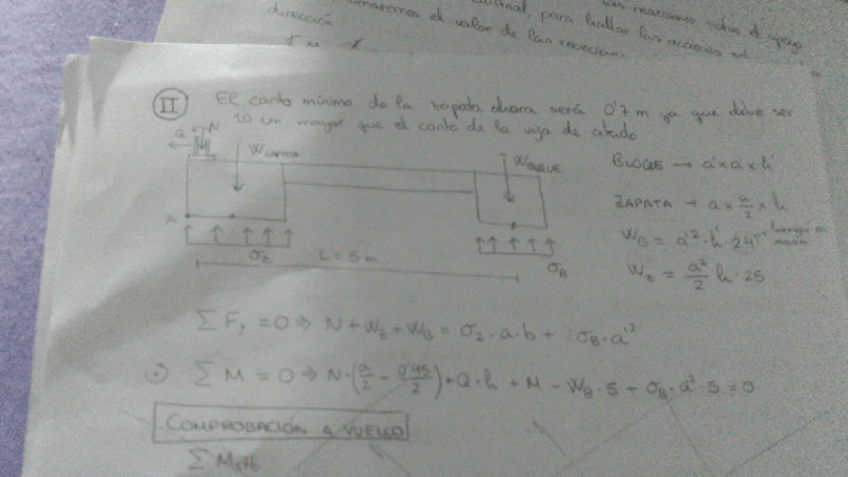 las reacciones sobre el apoyo
para hallar las acciones
dirección
el valor de las
II El canto mínimo de la zapata ahora será 0'7 m ya que debe ser
10 cm mayor que el canto de la viga de atado
Q N
W ZAPATA
W BLOQUE
A
σz
L = 5 m
σB
BLOQUE → a' x a' x h'
ZAPATA → a x a/2 x h
WB = a'² · h' · 24 → hormigón en
Wz = a²/2 h · 25
∑ Fy = 0 ⇒ N + Wz + WB = σz · a · b + σB · a'²
∑ M = 0 ⇒ N · (a/2 - 0'45/2) + Q · h + M - WB · 5 + σB · a'² · 5 = 0
COMPROBACIÓN A VUELCO
∑ Mstb